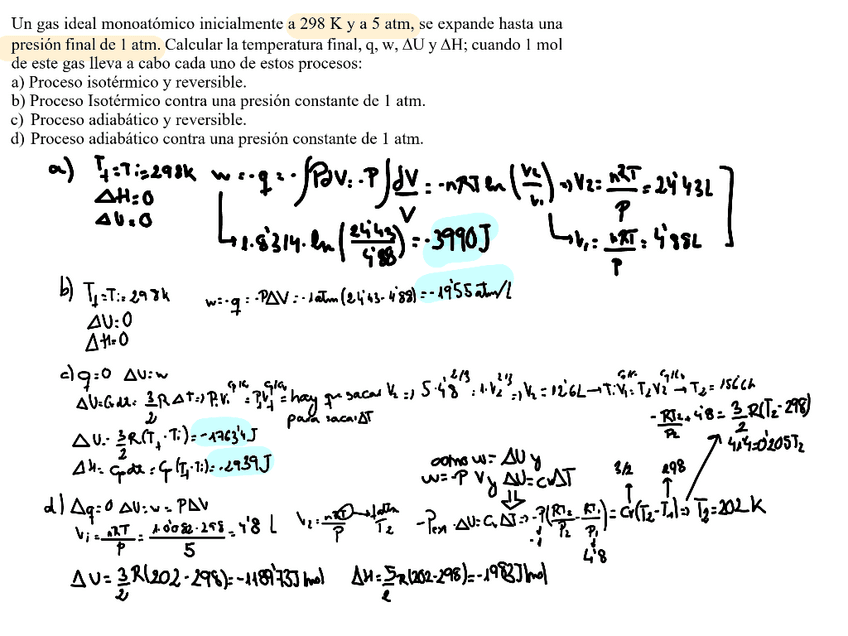 Un gas ideal monoatómico inicialmente a 298 K y a 5 atm, se expande hasta una
presión final de 1 atm. Calcular la temperatura final, q, w, ΔU y ΔH; cuando 1 mol
de este gas lleva a cabo cada uno de estos procesos:
a) Proceso isotérmico y reversible.
b) Proceso Isotérmico contra una presión constante de 1 atm.
c) Proceso adiabático y reversible.
d) Proceso adiabático contra una presión constante de 1 atm.
a) Tf=Ti=298K w=-q=-∫PdV=-P∫dV/V=-nRT ln(V2/V1)→V2=nRT/P=24'43L
ΔH=0
ΔU=0
1·8'314·ln(24'43/4'88)=-3990J V1=nRT/P=4'88L
b) Tf=Ti=298K w=-q=-PΔV=-1atm(24'43-4'88)=-19'55 atm/L
ΔU=0
ΔH=0
c) q=0 ΔU=w
hay que sacar V2
para sacar ΔT
ΔU=3/2R(Tf-Ti)=-1763'4J
ΔH= =Cp(Tf-Ti)=-2939J
como w=ΔU y
w=-P V y ΔU=CvΔT
-RT2/P2+4'8=3/2R(T2-298)
4'14=0'205T2
d) Δq=0 ΔU=w=PΔV
Vi=nRT/P=1·0'082·298/5=4'8 L V2=nRT/P → 1atm T2
-Pex·ΔU=CvΔT → -P(RT2/P2-RT1/P1)=Cv(T2-T1)→T2=202K
3/2 298
4'8
ΔU=3/2R(202-298)=-1189'73J/mol ΔH=5/2R(202-298)=-1983J/mol